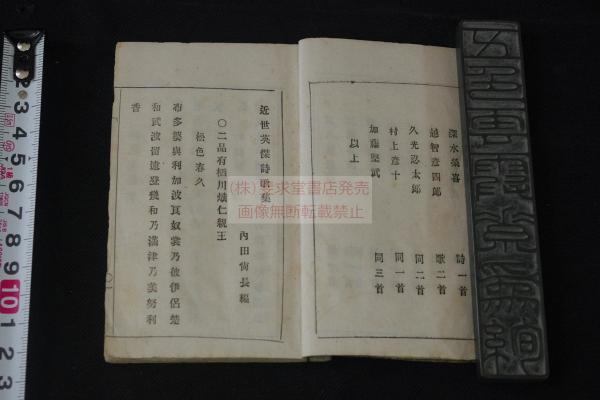 深水榮喜 詩一首
越智彦四郎 歌二首
久光忍太郎 同二首
村上彦十 同一首
加藤堅武 同三首
以上
近世英傑詩歌集
內田尙長編
〇二品有栖川熾仁親王
松色春久
布多婆與利加波良奴裳乃波伊呂楚
和武波留遠登幾和乃滿津乃美努利
香
(株)要求堂書店発売
画像無断転載禁止
2 3 4 5 6 7 8 9 10 1 2 3